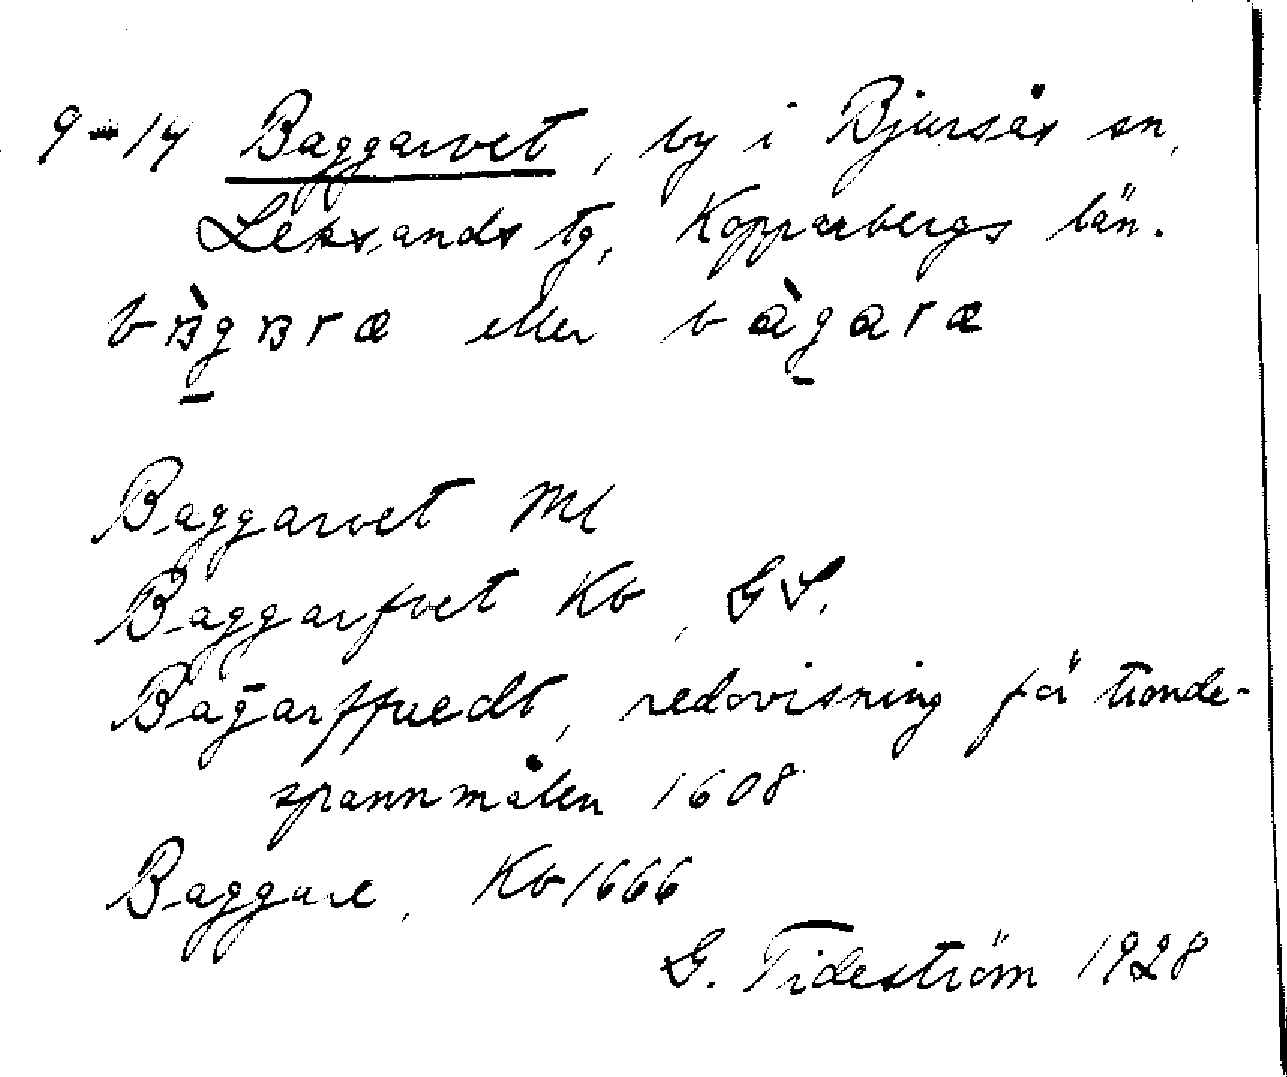 9-14 Baggarvet, by i Bjursås sn,
Leksands tg, Kopparbergs län.
eller bàgaræ
Baggarvet Ml
Baggarfvet Kb, GS.
Bag̅arffuedt, redovisning för tionde-
spannmålen 1608
Baggare, Kb 1666
G. Tideström 1928